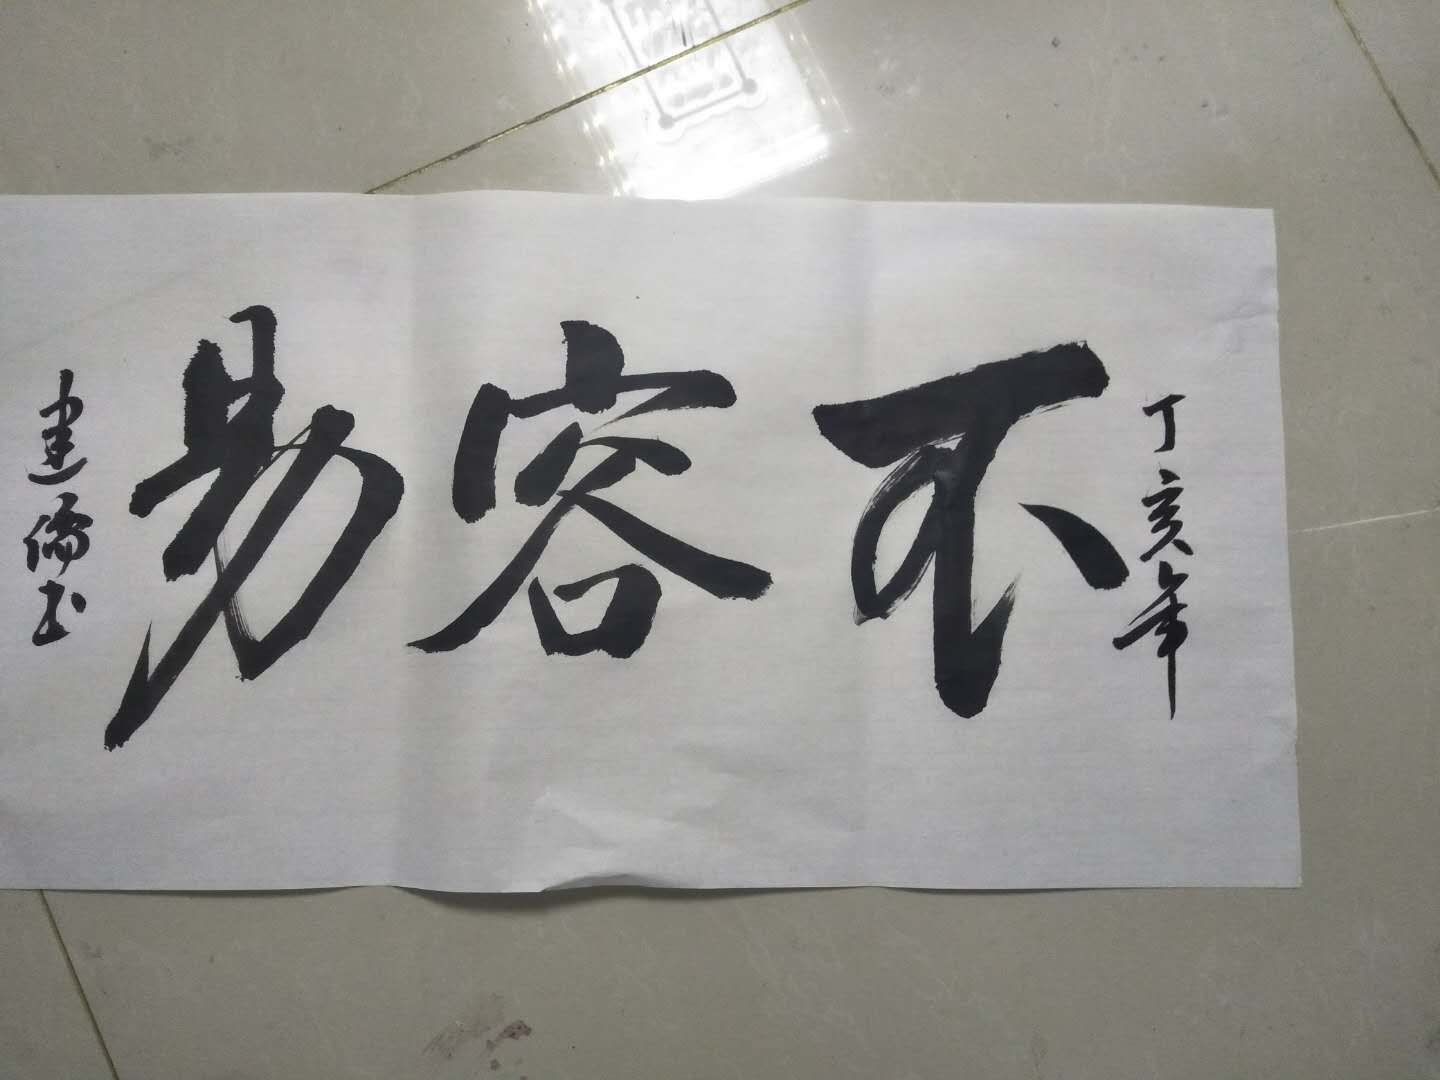 丁亥年
不容易
建儒书